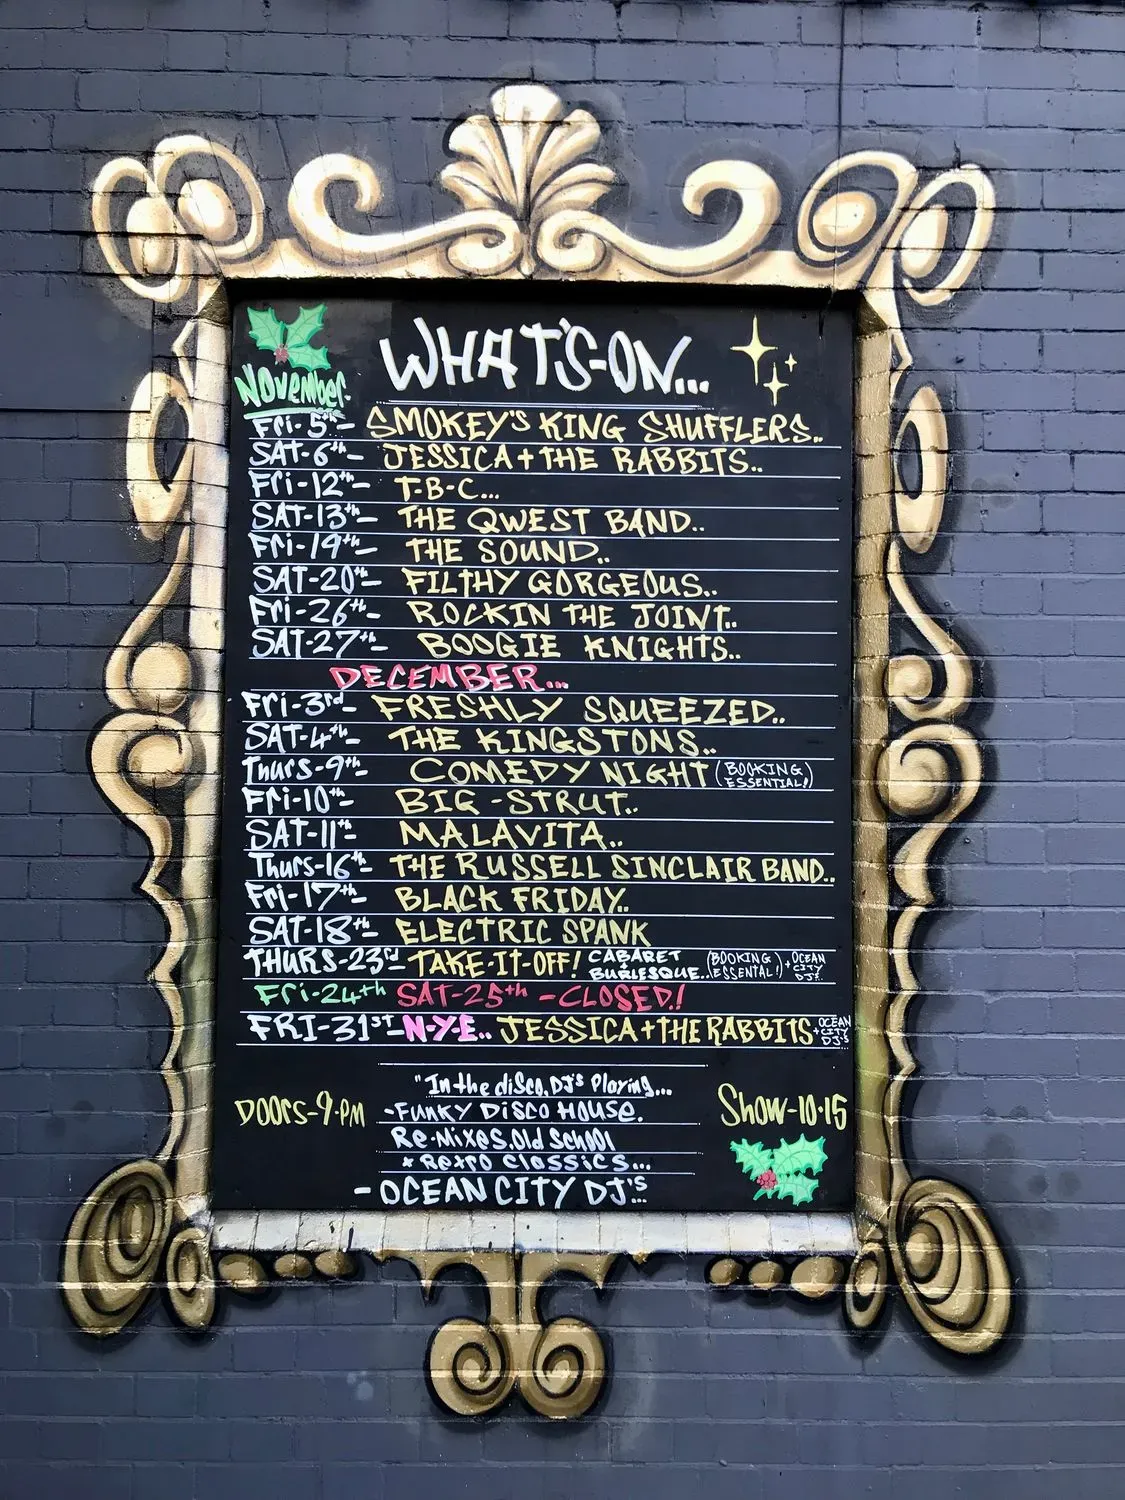 WHAT'S-ON...
November.
Fri-5th- SMOKEY'S KING SHUFFLERS..
SAT-6th- JESSICA + THE RABBITS..
Fri-12th- T-B-C...
SAT-13th- THE QWEST BAND..
Fri-19th- THE SOUND..
SAT-20th- FILTHY GORGEOUS..
Fri-26th- ROCKIN THE JOINT..
SAT-27th- BOOGIE KNIGHTS..
DECEMBER...
Fri-3rd- FRESHLY SQUEEZED..
SAT-4th- THE KINGSTONS..
Thurs-9th- COMEDY NIGHT (BOOKING ESSENTIAL!)
Fri-10th- BIG-STRUT..
SAT-11th- MALAVITA..
Thurs-16th- THE RUSSELL SINCLAIR BAND..
Fri-17th- BLACK FRIDAY..
SAT-18th- ELECTRIC SPANK
THURS-23rd- TAKE-IT-OFF! CABARET BURLESQUE.. (BOOKING ESSENTAL!) + OCEAN CITY DJ'S.
Fri-24th SAT-25th - CLOSED!
FRI-31ST- N-Y-E.. JESSICA + THE RABBITS + OCEAN CITY DJ'S
"In the disco, DJ's Playing...
DOORS-9.PM
-FUNKY DISCO HOUSE.
Show-10.15
Re-Mixes. Old School
+ Retro Classics...
- OCEAN CITY DJ'S...